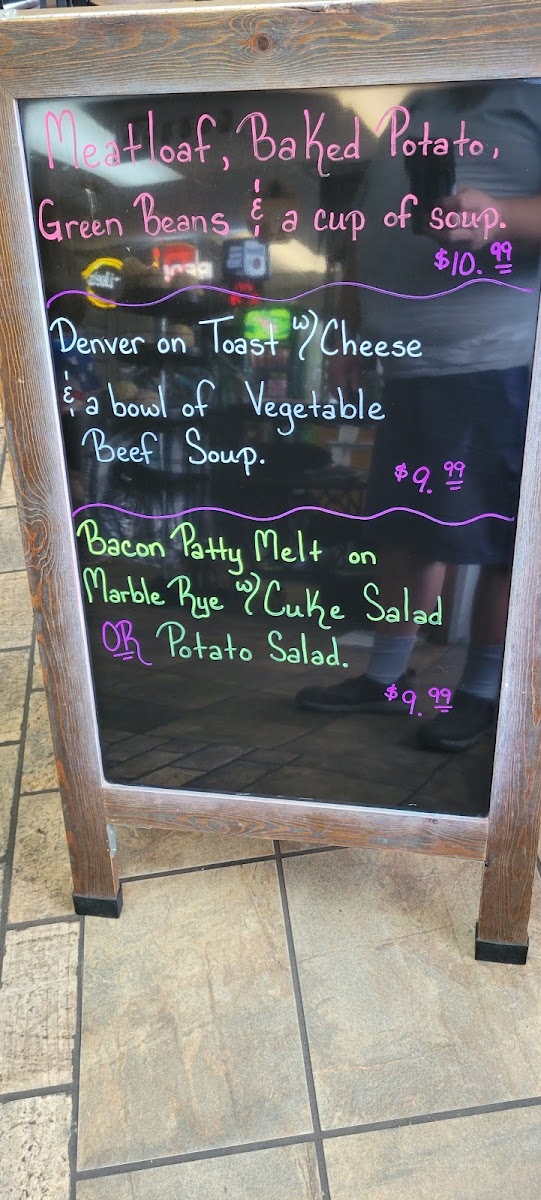 Meatloaf, Baked Potato,
Green Beans & a cup of soup.
$10.99
Denver on Toast w/ Cheese
& a bowl of Vegetable
Beef Soup.
$9.99
Bacon Patty Melt on
Marble Rye w/ Cuke Salad
OR Potato Salad.
$9.99